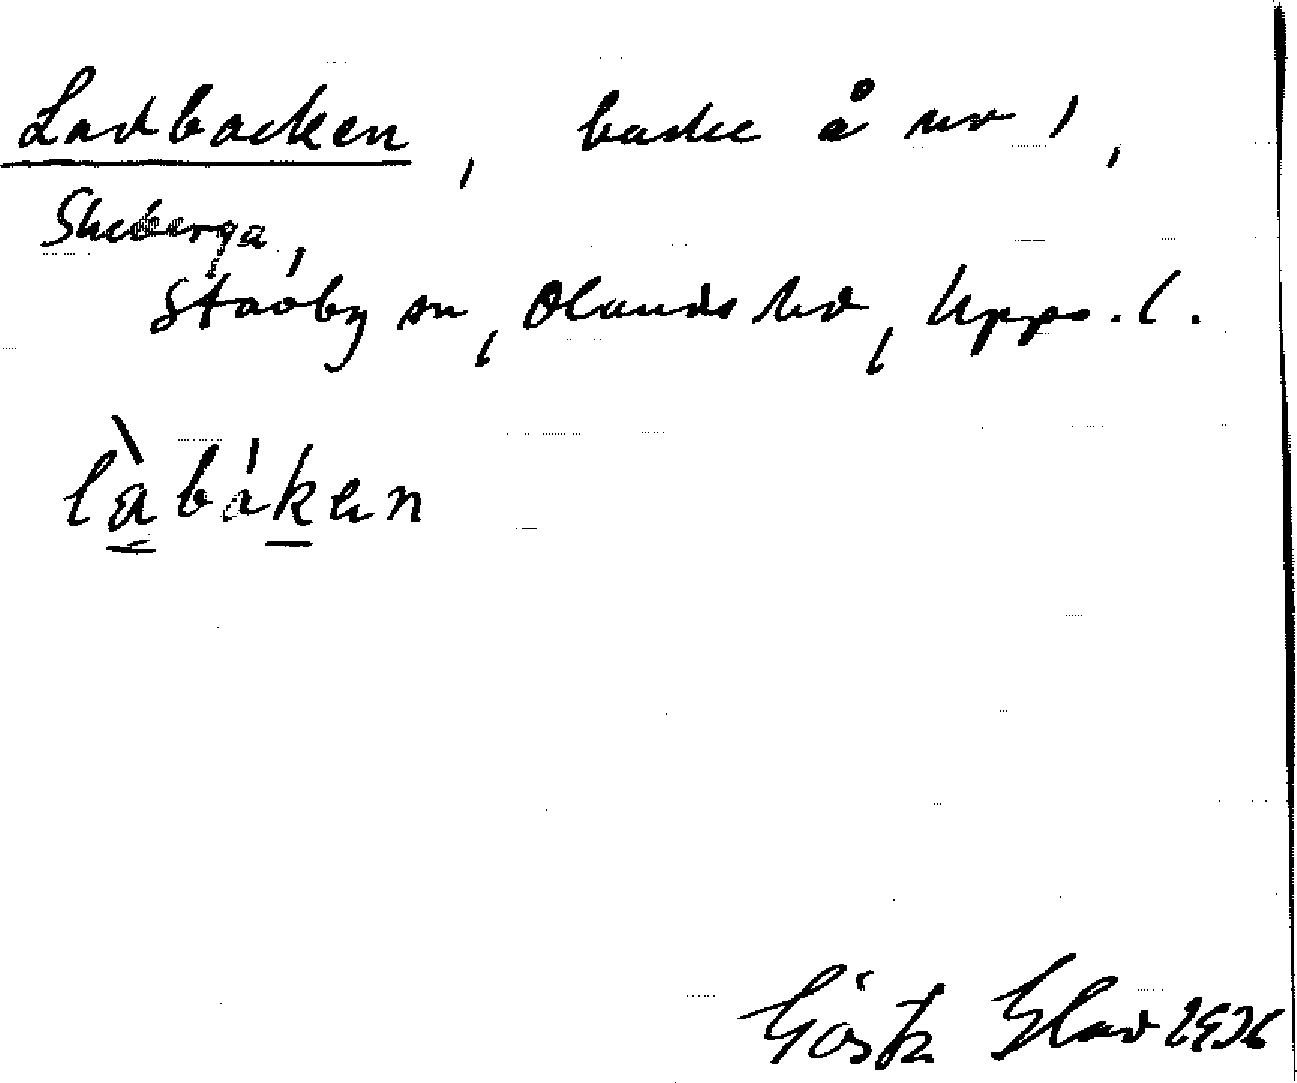 Ladbacken, backe å nr 1,
Skeberga,
Stavby sn, Olands hd, Upps. l.
làbáken
Gösta